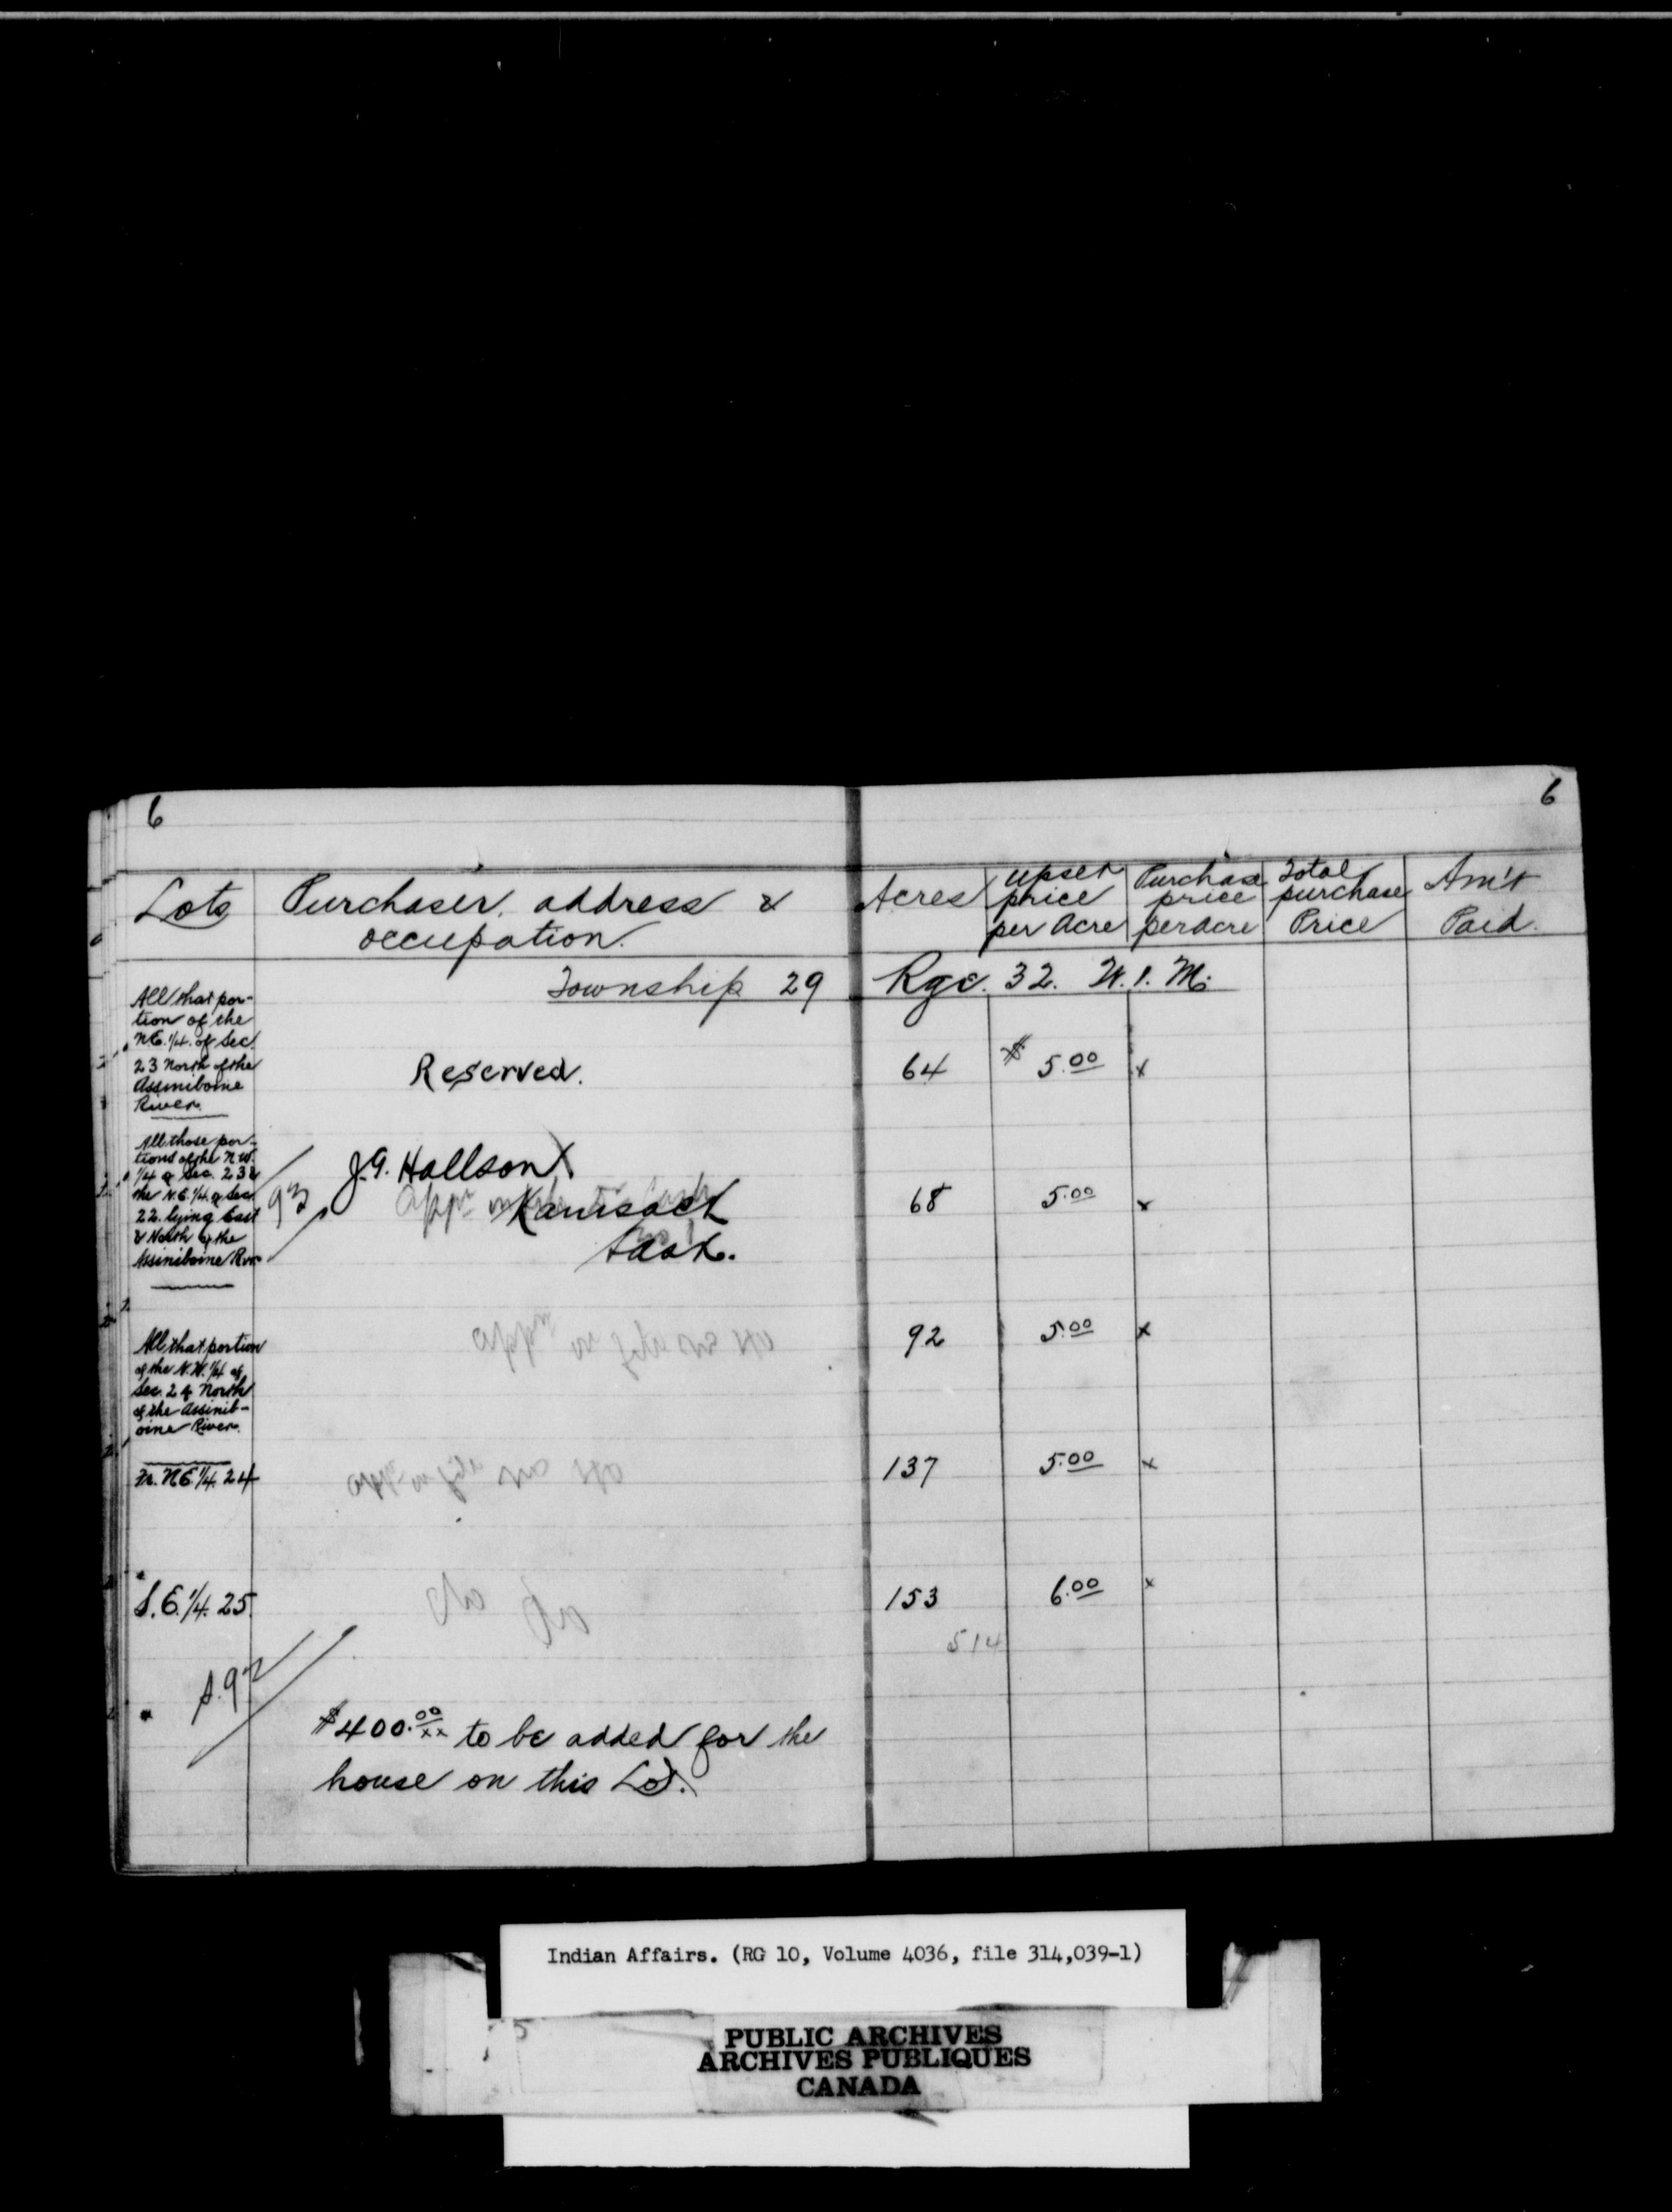 6
6
Lots
Purchaser, address &
occupation.
Acres
upset
price
per Acre
Purchase
price
per acre
Total
purchase
Price
Am't
Paid.
Township 29
Rge. 32. W. 1. M.
All that por-
tion of the
N.E. 1/4. of Sec.
23 North of the
Assiniboine
River.
Reserved.
64
$ 5.00
x
All those por-
tions of the N.W.
1/4 of Sec. 23 &
the N.E. 1/4 of Sec.
22 lying East
& North of the
Assiniboine River
J.G. Hallson
Kamsack
Sask.
68
5.00
x
All that portion
of the N.W. 1/4 of
Sec. 24 North
of the Assinib-
oine River.
92
5.00
x
Fr. N.E. 1/4. 24
137
5.00
x
S.E. 1/4. 25.
153
6.00
x
514
$400.00 xx to be added for the
house on this Lot.
Indian Affairs. (RG 10, Volume 4036, file 314,039-1)
PUBLIC ARCHIVES
ARCHIVES PUBLIQUES
CANADA